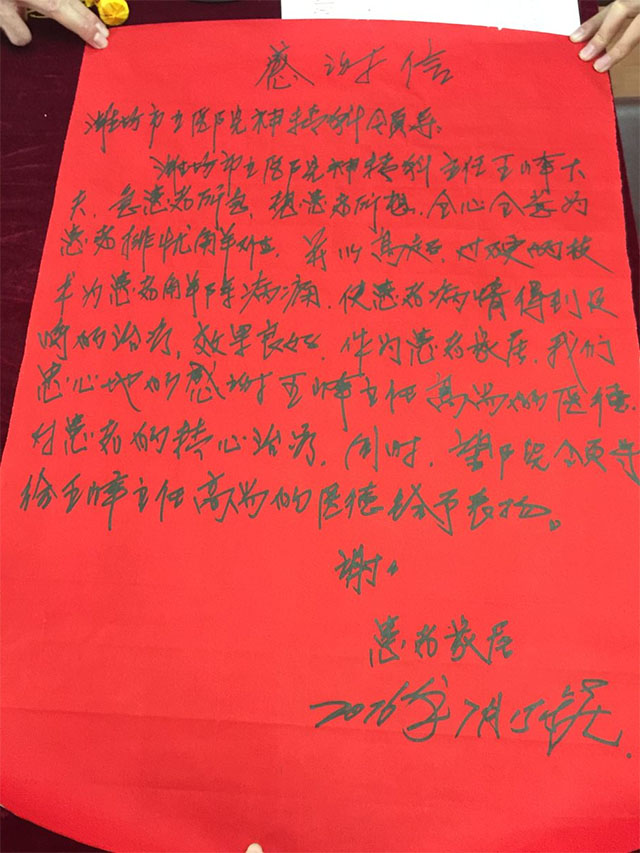 感谢信
潍坊市立医院神经科领导:
潍坊市立医院神经科主任王峰大
夫,急患者所急,想患者所想,全心全意为
患者排忧解难,并以高超,过硬的技
术为患者解除病痛,使患者病情得到及
时的治疗,效果良好,作为患者家属,我们
忠心地的感谢王峰主任高尚的医德,
对患者的精心治疗,同时,望院领导
给王峰主任高尚的医德给予表扬。
谢
患者家属
2016年7月15